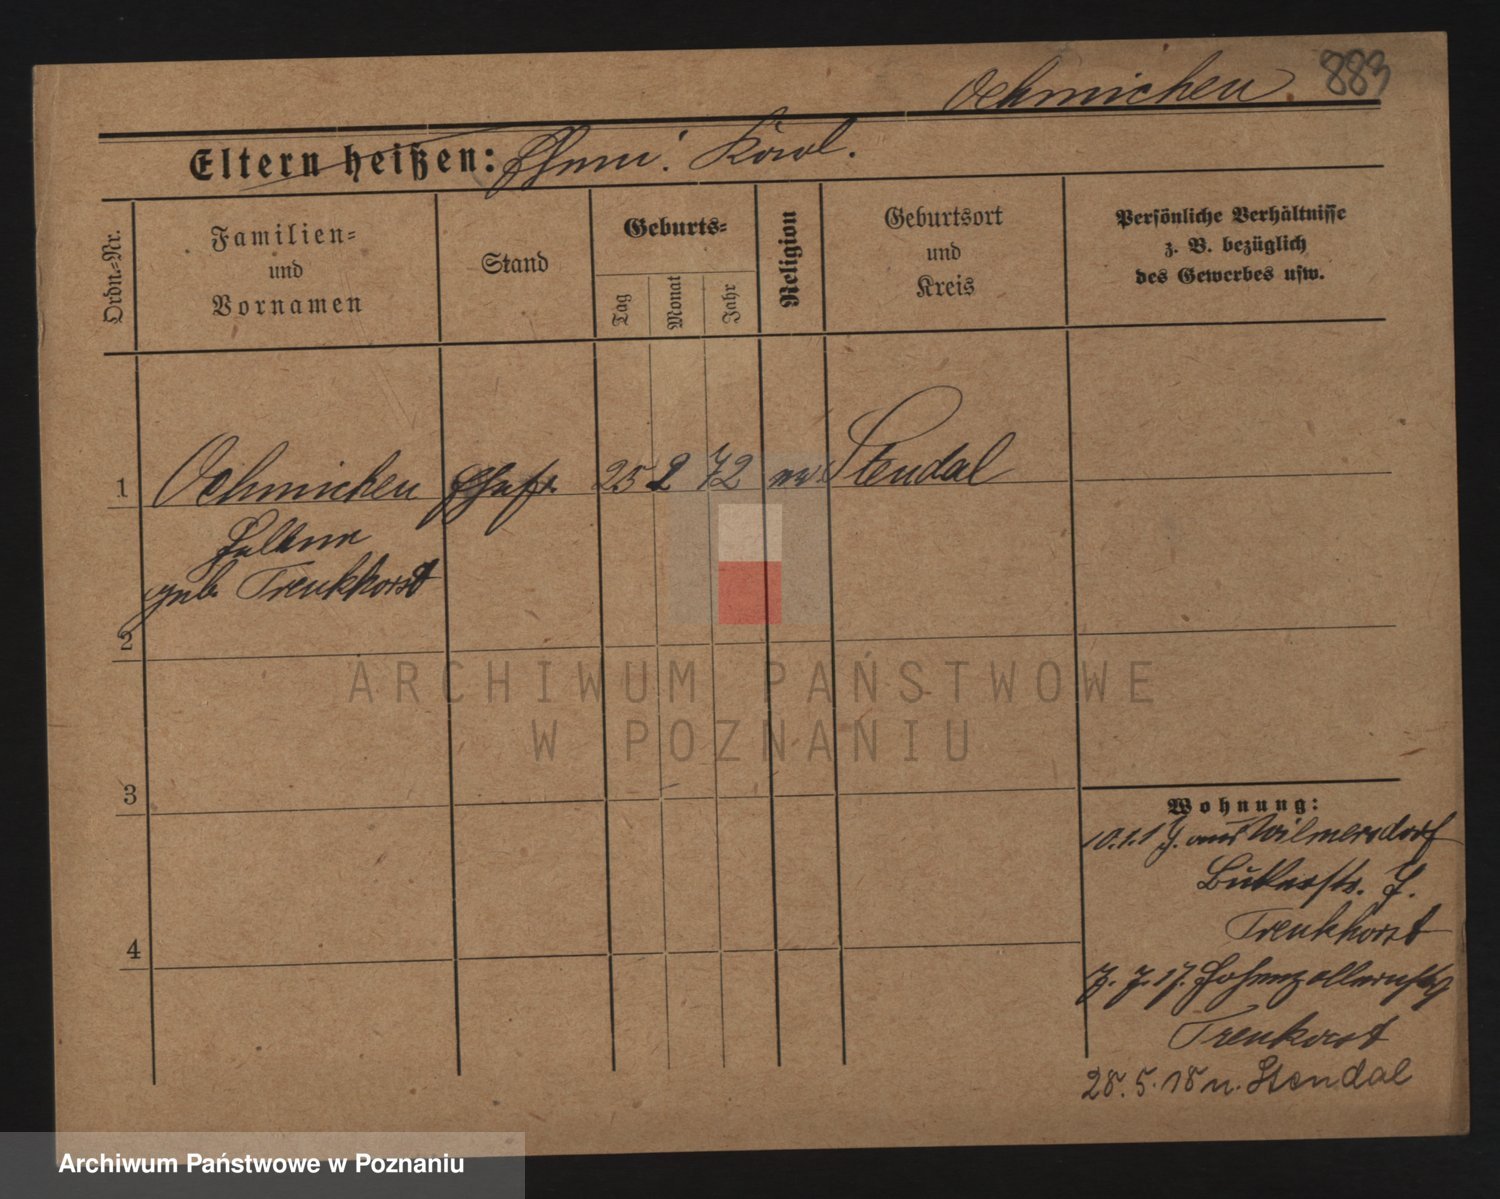 Oehmichen. 883
Eltern heißen: Ehem: Karl.
Ordn.-Nr.
Familien-
und
Vornamen
Stand
Geburts-
Tag
Monat
Jahr
Religion
Geburtsort
und
Kreis
Persönliche Verhältnisse
z. B. bezüglich
des Gewerbes usw.
1 Oehmichen Ehefr. 25 2 72 ev. Stendal
Helene
geb. Trenkhorst
2
3
4
Wohnung:
10.1.17. aus Wilmersdorf
Bukerstr. 7.
Trenkhorst
7. 7. 17. Hohenzollernstr
Trenkorst
28. 5. 18 n. Stendal
ARCHIWUM PAŃSTWOWE
W POZNANIU
Archiwum Państwowe w Poznaniu